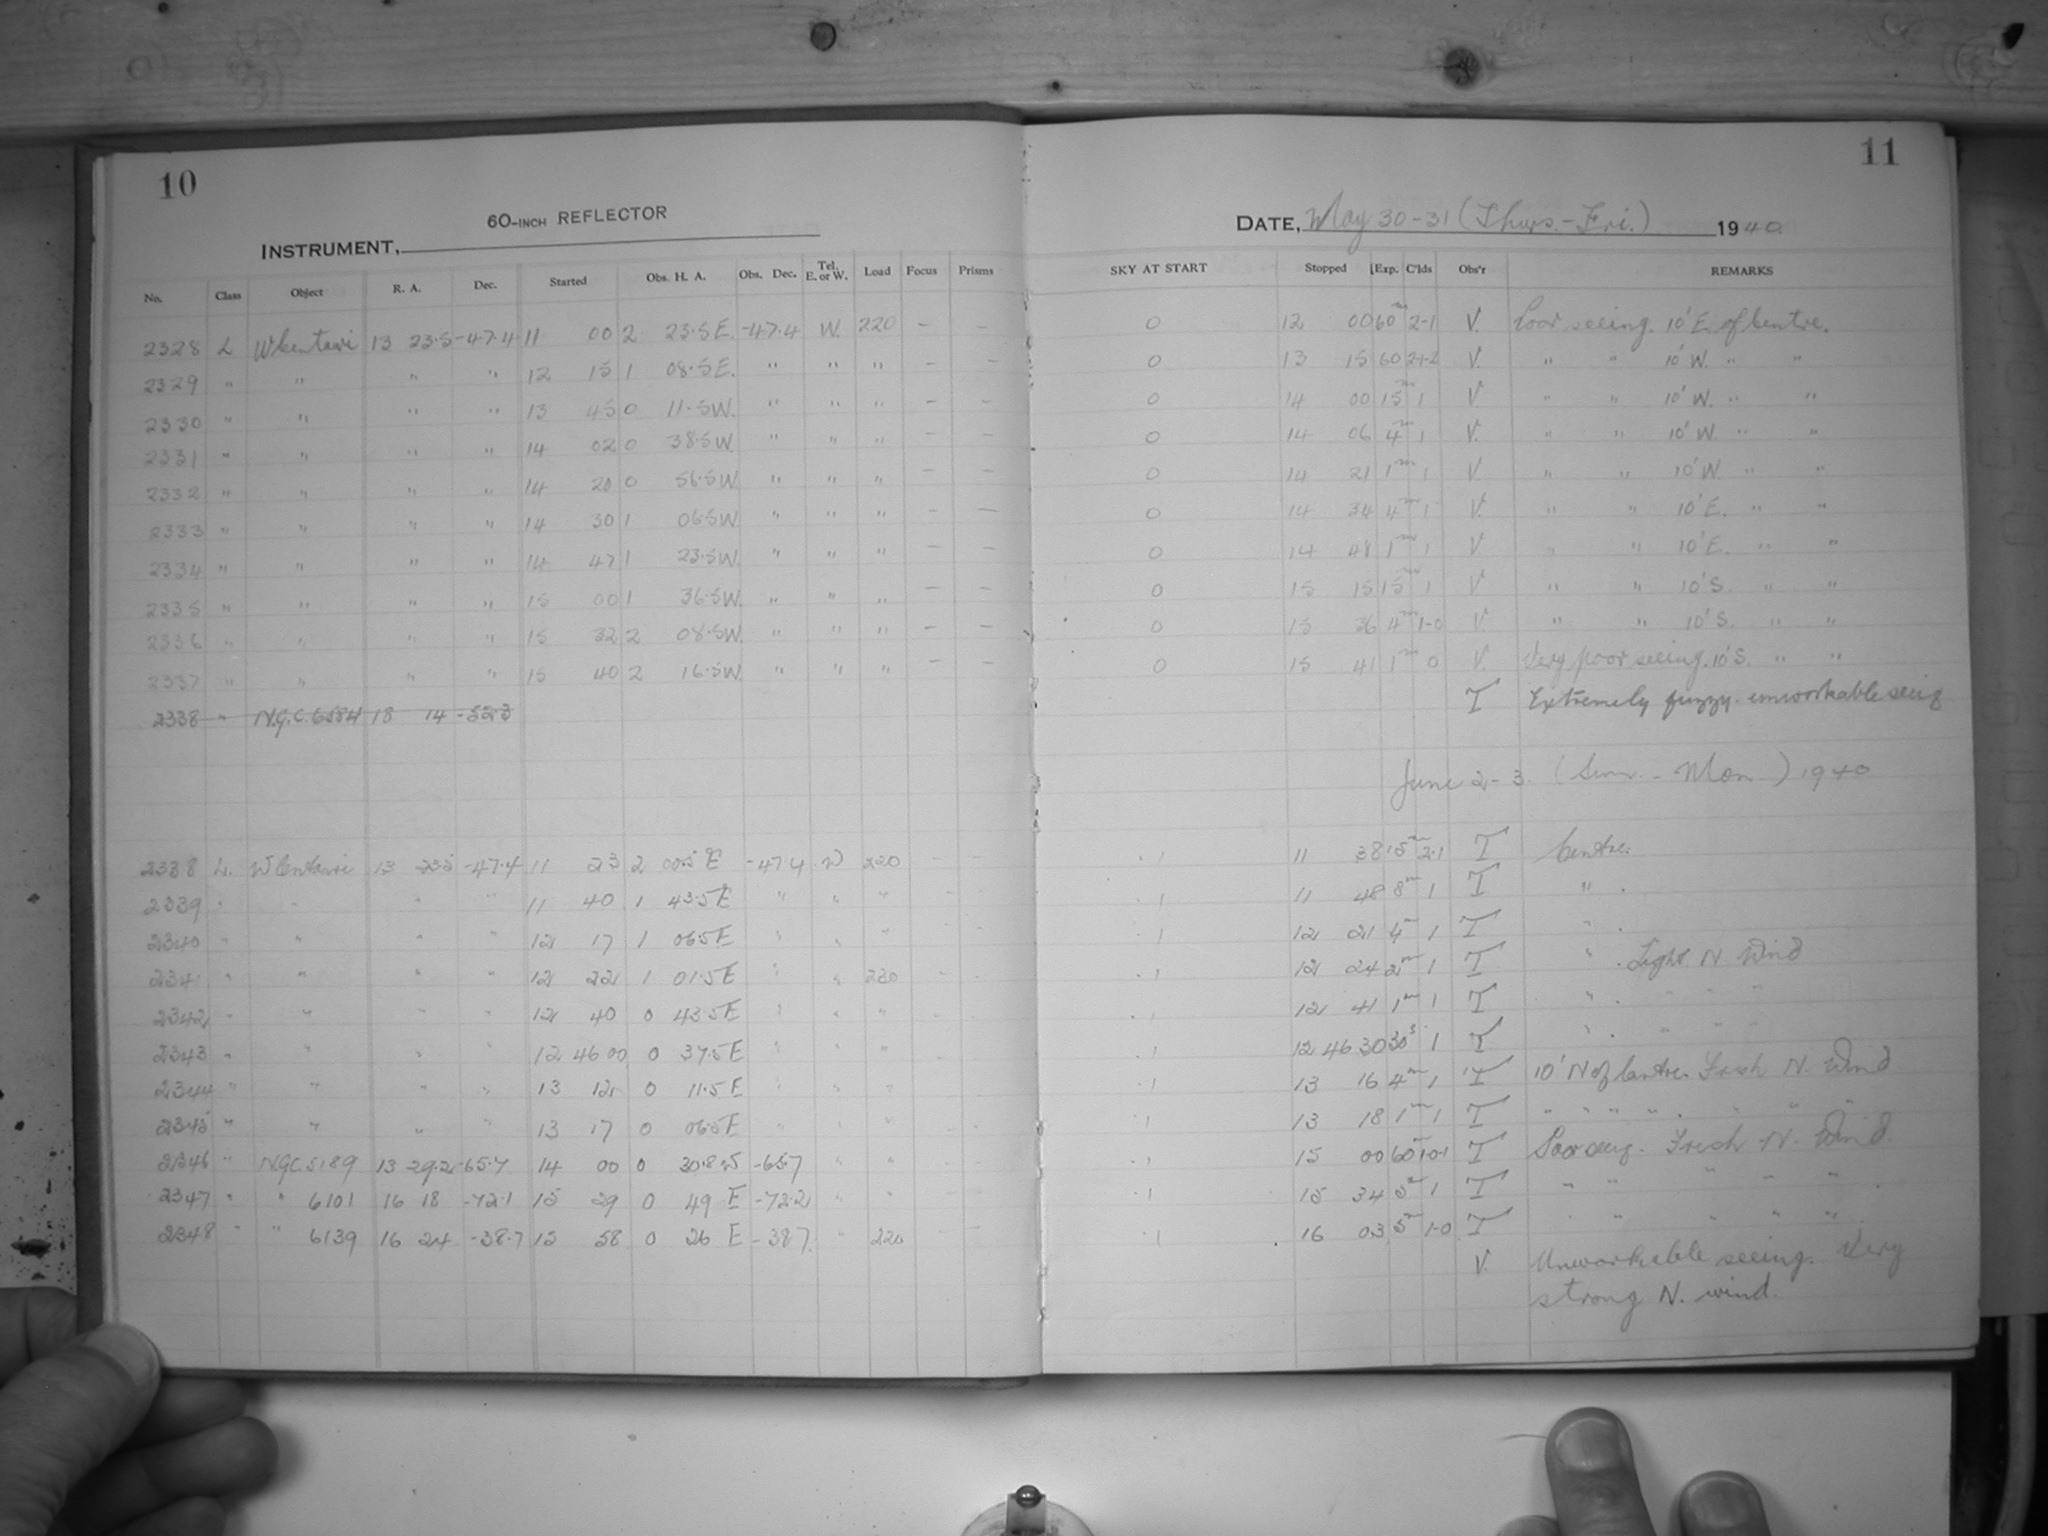 10
60-INCH REFLECTOR
INSTRUMENT,
No. Class Object R. A. Dec. Started Obs. H. A. Obs. Dec. Tel. E. or W. Load Focus Prisms
2328 L W Centauri 13 23.5 -47.4 11 00 2 23.5 E. -47.4 W. 220 - -
2329 " " " " 12 15 1 08.5 E. " " " - -
2330 " " " " 13 45 0 11.5 W. " " " - -
2331 " " " " 14 02 0 38.5 W " " " - -
2332 " " " " 14 20 0 56.5 W. " " " - -
2333 " " " " 14 30 1 06.5 W " " " - -
2334 " " " " 14 47 1 23.5 W. " " " - -
2335 " " " " 15 00 1 36.5 W. " " " - -
2336 " " " " 15 32 2 08.5 W " " " - -
2337 " " " " 15 40 2 16.5 W " " " - -
2338 " N.G.C. 6584 18 14 -52.3
2338 L. W Centauri 13 23.5 -47.4 11 23 2 00.5 E -47.4 W 220 - -
2339 " " " " 11 40 1 43.5 E " " "
2340 " " " " 12 17 1 06.5 E " " "
2341 " " " " 12 22 1 01.5 E " " 220
2342 " " " " 12 40 0 43.5 E " " "
2343 " " " " 12 46 00 0 37.5 E " " "
2344 " " " " 13 12 0 11.5 E " " "
2345 " " " " 13 17 0 06.5 E " " "
2346 " N.G.C. 5189 13 29.2 -65.7 14 00 0 30.8 W -65.7 " "
2347 " " 6101 16 18 -72.1 15 29 0 49 E -72.2 " "
2348 " " 6139 16 24 -38.7 15 58 0 26 E -38.7 " 220
11
DATE, May 30-31 (Thurs.-Fri.) 1940
SKY AT START Stopped Exp. C'lds Obs'r REMARKS
0 12 00 60m 2-1 V. Poor seeing. 10' E. of Centre.
0 13 15 60 2-1-2 V. " " 10' W. " "
0 14 00 15m 1 V. " " 10' W. " "
0 14 06 4m 1 V. " " 10' W. " "
0 14 21 1m 1 V. " " 10' W. " "
0 14 34 4m 1 V. " " 10' E. " "
0 14 48 1m 1 V. " " 10' E. " "
0 15 15 15m 1 V. " " 10' S. " "
0 15 36 4m 1-0 V. " " 10' S. " "
0 15 41 1m 0 V. Very poor seeing. 10' S. " "
T Extremely fuzzy. unworkable seeing
June 2-3 (Sun. - Mon.) 1940
.1 11 38 15m 2-1 T Centre.
.1 11 48 8m 1 T " .
.1 12 21 4m 1 T " .
.1 12 24 2m 1 T " . Light N Wind
.1 12 41 1m 1 T " . " " "
.1 12 46 30 30s 1 T " . " " "
.1 13 16 4m 1 T 10' N of Centre. Fresh N. Wind
.1 13 18 1m 1 T " " " " . " " "
.1 15 00 60m 1-0-1 T Poor seeing. Fresh N. Wind
.1 15 34 5m 1 T " " " " "
.1 16 03 5m 1-0 T " " " " "
V. Unworkable seeing. Very
strong N. wind.